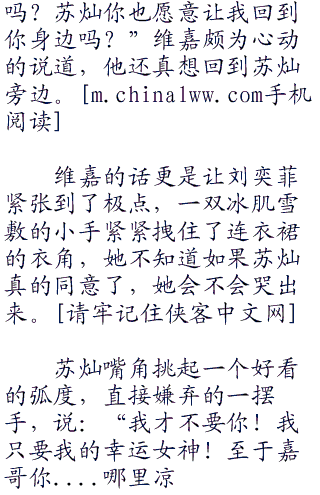 吗？苏灿你也愿意让我回到
你身边吗？”维嘉颇为心动
的说道，他还真想回到苏灿
旁边。[m.chinalww.com手机
阅读]
维嘉的话更是让刘奕菲
紧张到了极点，一双冰肌雪
敷的小手紧紧拽住了连衣裙
的衣角，她不知道如果苏灿
真的同意了，她会不会哭出
来。[请牢记住侠客中文网]
苏灿嘴角挑起一个好看
的弧度，直接嫌弃的一摆
手，说：“我才不要你！我
只要我的幸运女神！至于嘉
哥你....哪里凉